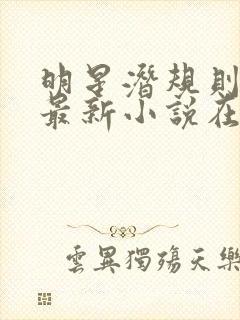 明星潛規則
最新小說在
雲異獨殤天樂